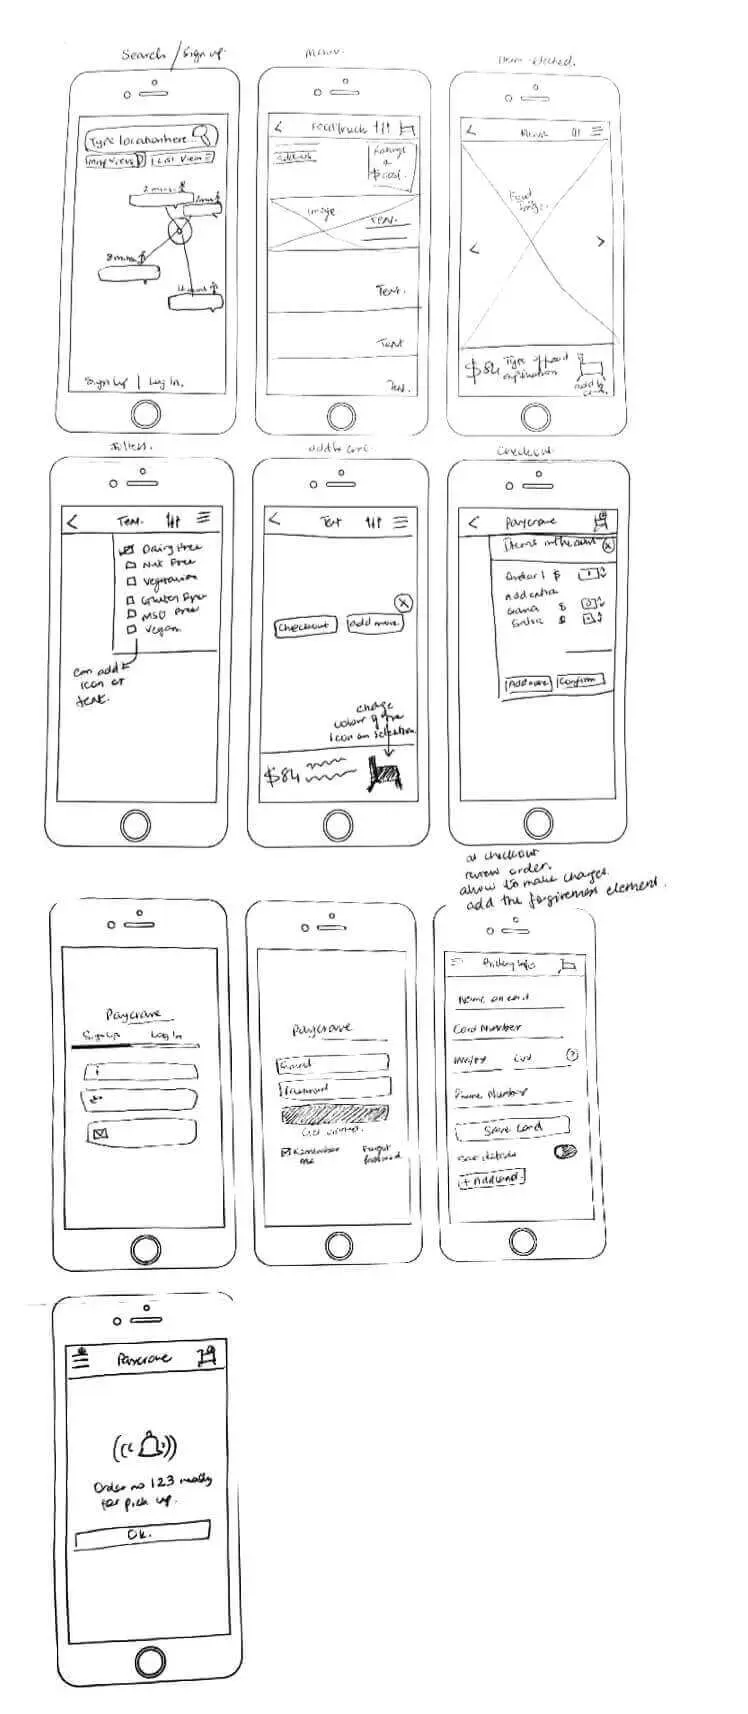 Search / Sign up.
Menu.
Type location here
Map View
List View
2 mins.
8 mins
Sign Up | Log In.
Food truck
address
Ratings
&
$ cost.
Image
Text.
Text.
Text
Text.
Menu
Food
Img.
$84 Type of food
add to
Filters.
add to cart.
Checkout.
Text.
Dairy Free
Nut Free
Vegetarian
Gluten Free
MSG Free
Vegan
can add
icon or
text.
Text
Checkout
add more
change
colour of the
icon on selection.
$84
Paycrave
Items in the cart
Order 1 $ 1
Add extra
$ 0
Salsa $
Add more
Confirm
at checkout
review order.
allow to make changes.
add the forgiveness element.
Paycrave
Sign Up
Log In
Paycrave
Email
Password
Remember
me
Forgot
Password
Name on card
Card Number
CVV ?
Phone Number
Save Card
+ Add card.
Paycrave
Order no 123 ready
for pick up.
Ok.